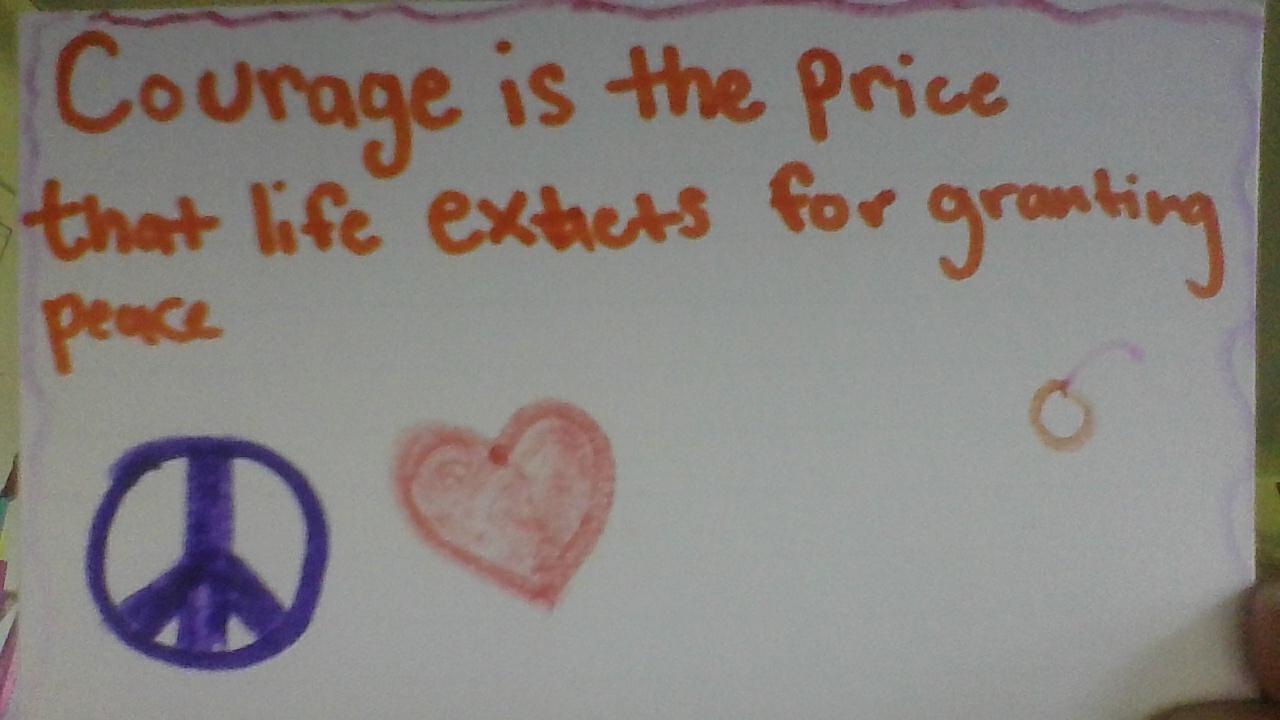 Courage is the price
that life extacts for granting
peace